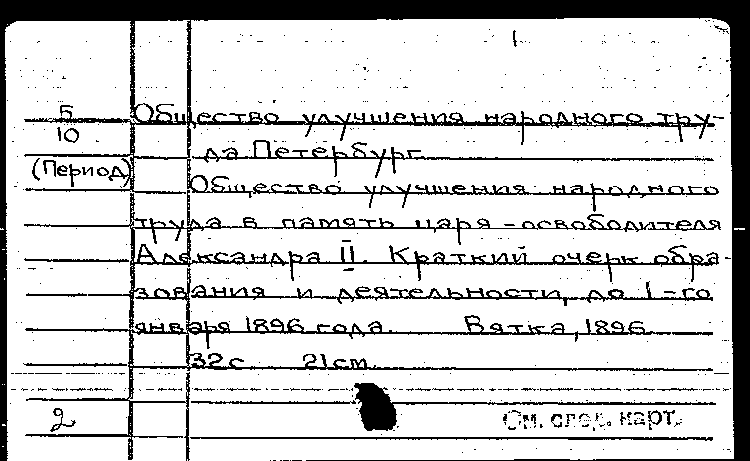 1
5
10
(Период)
Общество улучшения народного тру-
да Петербург
Общество улучшения народного
труда в память царя-освободителя
Александра II. Краткий очерк обра-
зования и деятельности, до 1-го
января 1896 года. Вятка, 1896
32с 21см
2 См. след. карт.